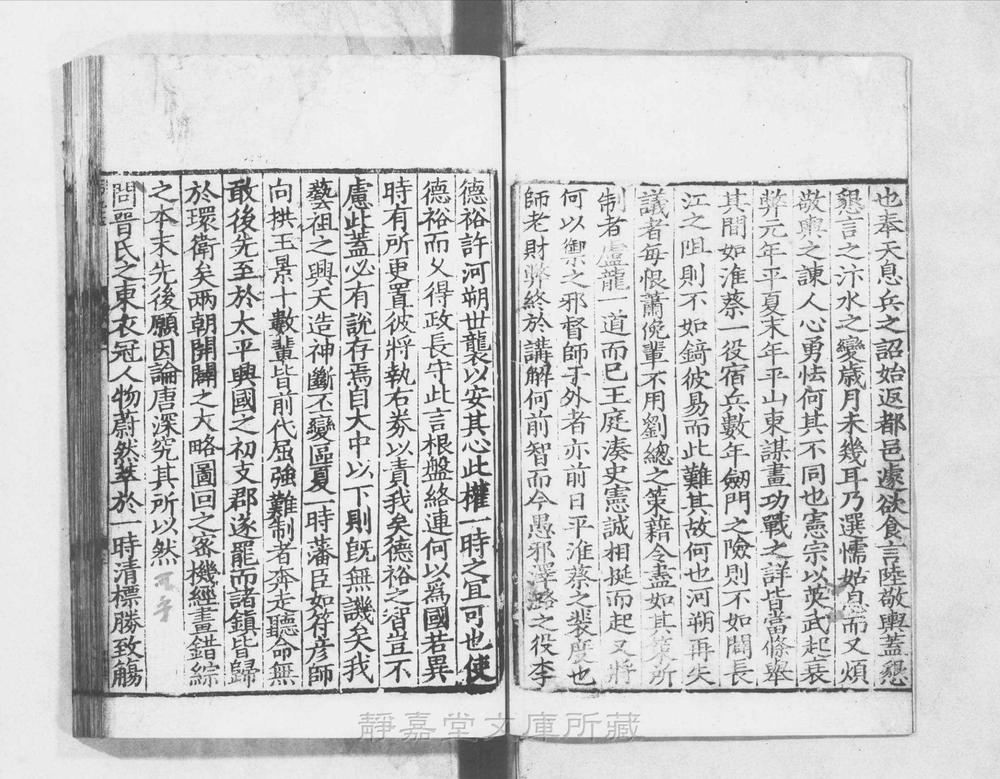 也奉天息兵之詔始返都邑遽欲食言陸敬輿蓋懇
懇言之汴水之變歲月未幾耳乃選懦姑息而又煩
敬輿之諫人心勇怯何其不同也憲宗以英武起衰
弊元年平夏末年平山東謀畫功戰之詳皆當條舉
其間如淮蔡一役宿兵數年劒門之險則不如閩長
江之阻則不如鎬彼易而此難其故何也河朔再失
議者每恨蕭俛輩不用劉總之策藉令盡如其策所
制者盧龍一道而已王庭湊史憲誠相挻而起又將
何以禦之邪督師于外者亦前日平淮蔡之裴度也
師老財弊終於講解何前智而今愚邪澤潞之役李
德裕許河朔世襲以安其心此權一時之宜可也使
德裕而久得政長守此言根盤絡連何以爲國若異
時有所更置彼將執右劵以責我矣德裕之智豈不
慮此蓋必有說存焉自大中以下則旣無譏矣我
藝祖之興天造神斷丕變區夏一時藩臣如符彥師
向拱王景十數輩皆前代屈強難制者奔走聽命無
敢後先至於太平興國之初支郡遂罷而諸鎮皆歸
於環衛矣兩朝開闢之大略圖回之密機經畫錯綜
之本末先後願因論唐深究其所以然
問晉氏之東衣冠人物蔚然萃於一時清標勝致觴
靜嘉堂文庫所藏